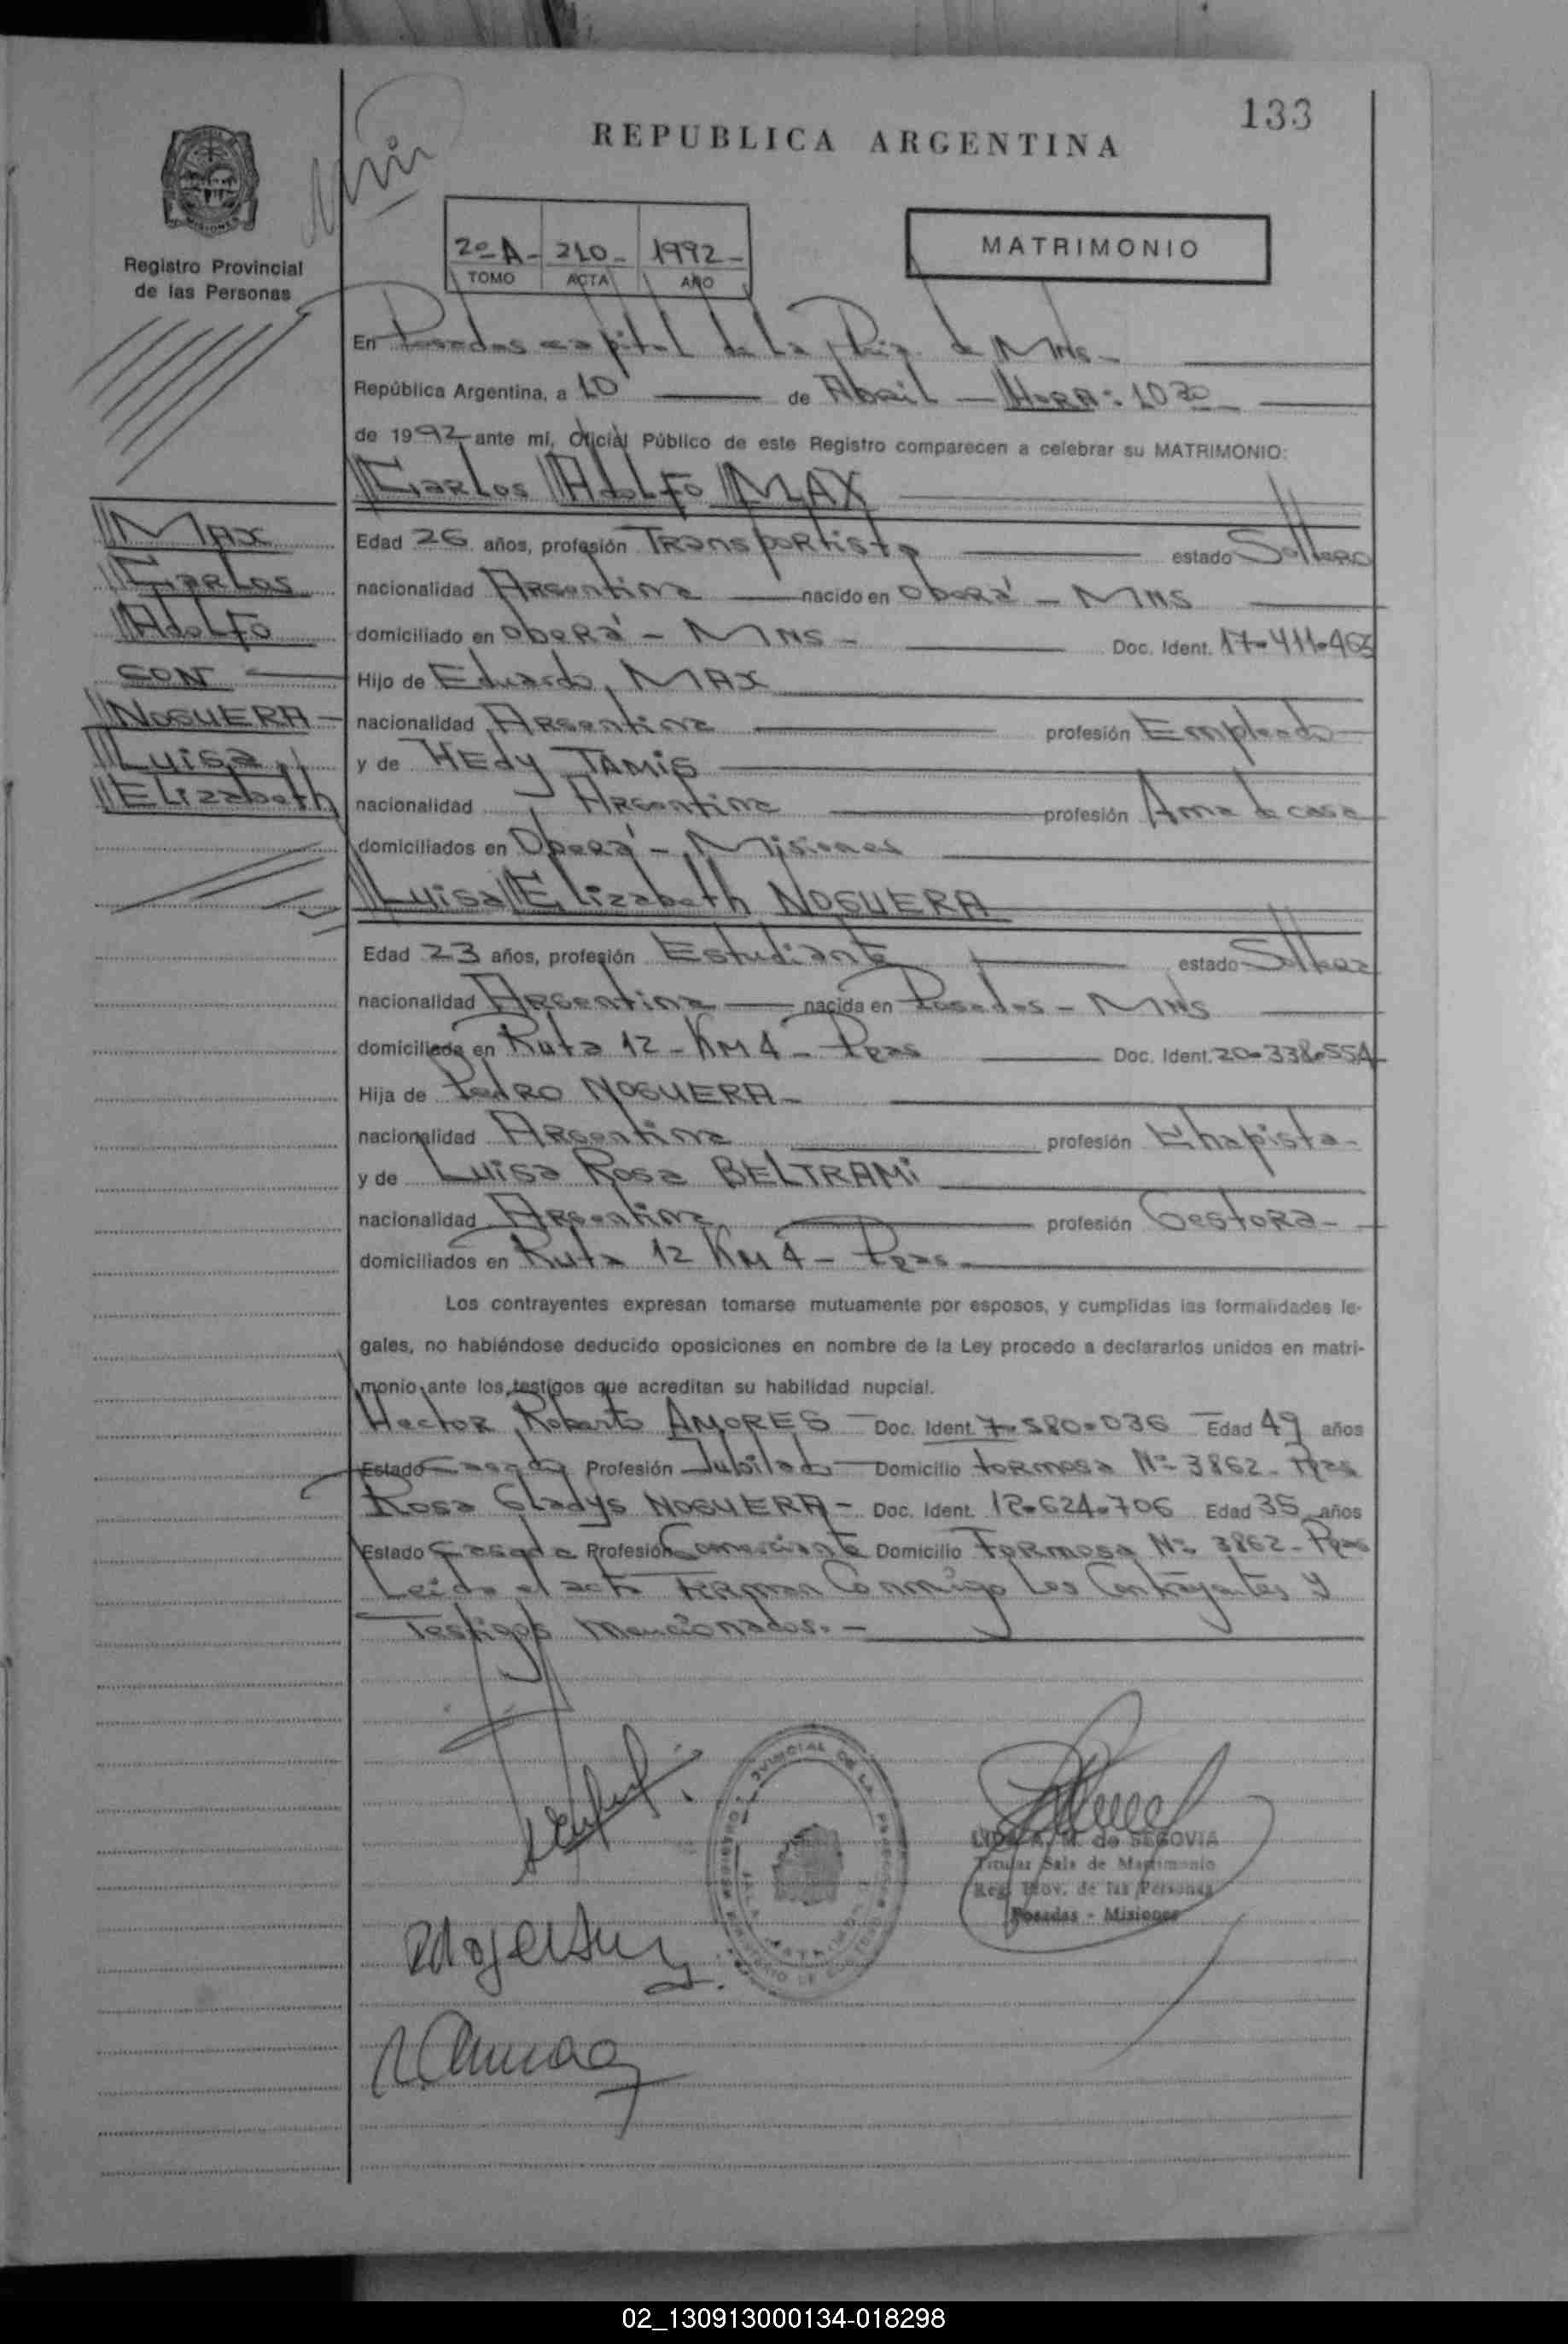 133
REPUBLICA ARGENTINA
MISIONES
Registro Provincial
de las Personas
2º A - 210 - 1992 -
TOMO ACTA AÑO
MATRIMONIO
En Posadas capital de la Pcia. de Mns -
República Argentina, a 10 de Abril - HORA: 10 30
de 1992 ante mí, Oficial Público de este Registro comparecen a celebrar su MATRIMONIO:
Carlos Adolfo MAX
MAX
Carlos
Adolfo
CON
NOGUERA -
Luisa
Elizabeth
Edad 26 años, profesión Transportista estado Soltero
nacionalidad Argentina nacido en Oberá - MNS
domiciliado en Oberá - MNS - Doc. Ident. 17.411.463
Hijo de Eduardo MAX
nacionalidad Argentina profesión Empleado
y de HEdy TAMIS
nacionalidad Argentina profesión Ama de casa
domiciliados en Oberá - Misiones
Luisa Elizabeth NOGUERA
Edad 23 años, profesión Estudiante estado Soltera
nacionalidad Argentina nacida en Posadas - MNS
domiciliada en Ruta 12 - KM 4 - Pdas Doc. Ident. 20.338.554
Hija de Pedro NOGUERA -
nacionalidad Argentina profesión Chapista -
y de Luisa Rosa BELTRAMI
nacionalidad Argentina profesión Gestora -
domiciliados en Ruta 12 KM 4 - Pdas -
Los contrayentes expresan tomarse mutuamente por esposos, y cumplidas las formalidades le-
gales, no habiéndose deducido oposiciones en nombre de la Ley procedo a declararlos unidos en matri-
monio ante los testigos que acreditan su habilidad nupcial.
Hector Roberto AMORES - Doc. Ident. 7.580.036 Edad 49 años
Estado Casado Profesión Jubilado Domicilio Formosa Nº 3862 - Pdas
Rosa Gladys NOGUERA - Doc. Ident. 12.624.706 Edad 35 años
Estado Casada Profesión Comerciante Domicilio Formosa Nº 3862 - Pdas
Leida el acta Firman Conmigo Los Contrayentes y
Testigos Mencionados. -
LIDA A. M. de SEGOVIA
Titular Sala de Matrimonio
Reg. Prov. de las Personas
Posadas - Misiones
02_130913000134-018298